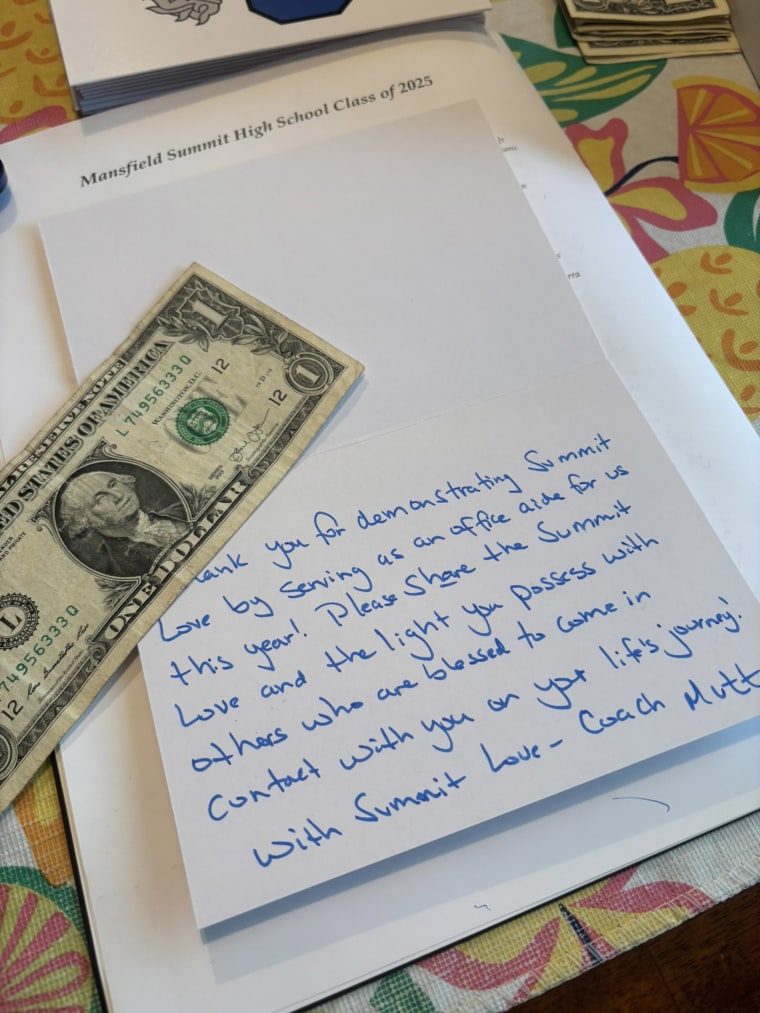 Mansfield Summit High School Class of 2025
FEDERAL RESERVE NOTE
UNITED STATES OF AMERICA
L 74956333 Q
WASHINGTON, D.C.
12
12
1
1
L
74956333 Q
12
ONE DOLLAR
Thank you for demonstrating Summit
Love by serving as an office aide for us
this year! Please Share the Summit
Love and the light you possess with
others who are blessed to come in
contact with you on your life's journey!
With Summit Love - Coach Mutt